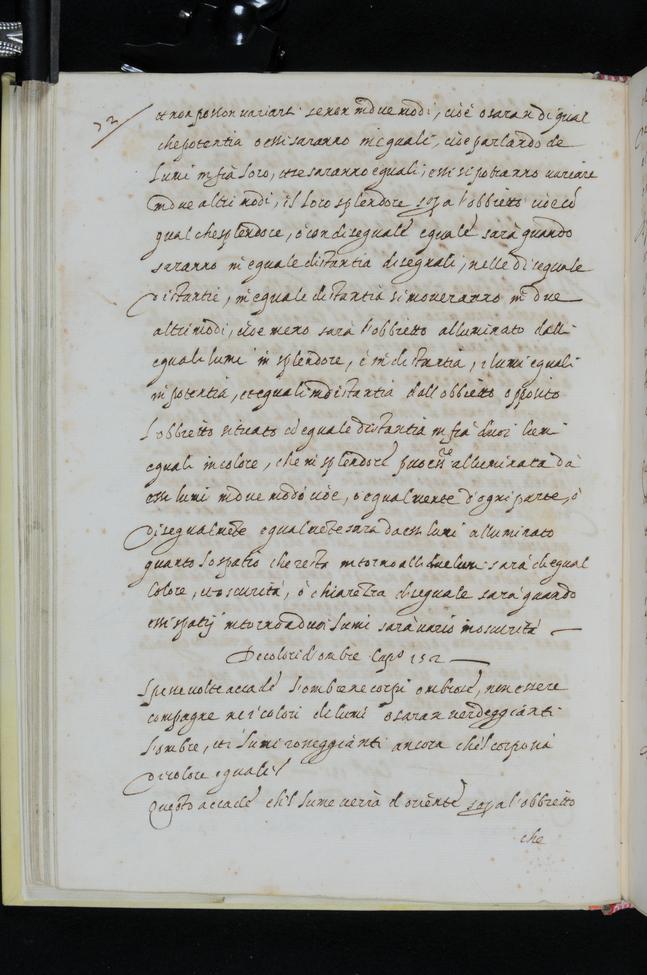 et non posson variare se non in due modi, cioè o saran di ugual
che potentia o essi saranno ineguali, cioè parlando de
lumi infrà loro, et se saranno equali, essi si potranno variare
in due altri modi, il loro splendore sopra l'obbietto cioè cō
qual che splendore, ò con diseguale equale sarà quando
saranno in equale distantia diseguali, nelle diseguale
Distantie, in equale distantia si moveranno in due
altri modi, cioè meno sarà l'obbietto alluminato dalli
equali lumi in splendore, e in distantia, i lumi equali
in potentia, et equali in distantia dall'obbietto opposito
L'obbietto situato cō equale distantia infrà duoi lumi
equali in colore, che in splendore puo essere alluminata da
essi lumi in due modo cioè, o equalmente d'ogni parte, ò
Disegualmēte equalmēte sara da essi lumi alluminato
quanto lo spatio che resta intorno alli due lumi sarà di equal
Colore, et oscurità, ò chiarezza diseguale sarà quando
essi spatij intorno a duoi lumi sarà vario in oscurità
De colori d'ombre Capº 152
Spesse volte accade l'ombre ne corpi ombrosi, non essere
compagne ne i colori de lumi o saran verdeggianti
l'ombre, et i lumi rosseggianti ancora che'l corpo sia
Di colore equale
Questo accade che'l lume verrà d'oriente sopra l'obbietto
che